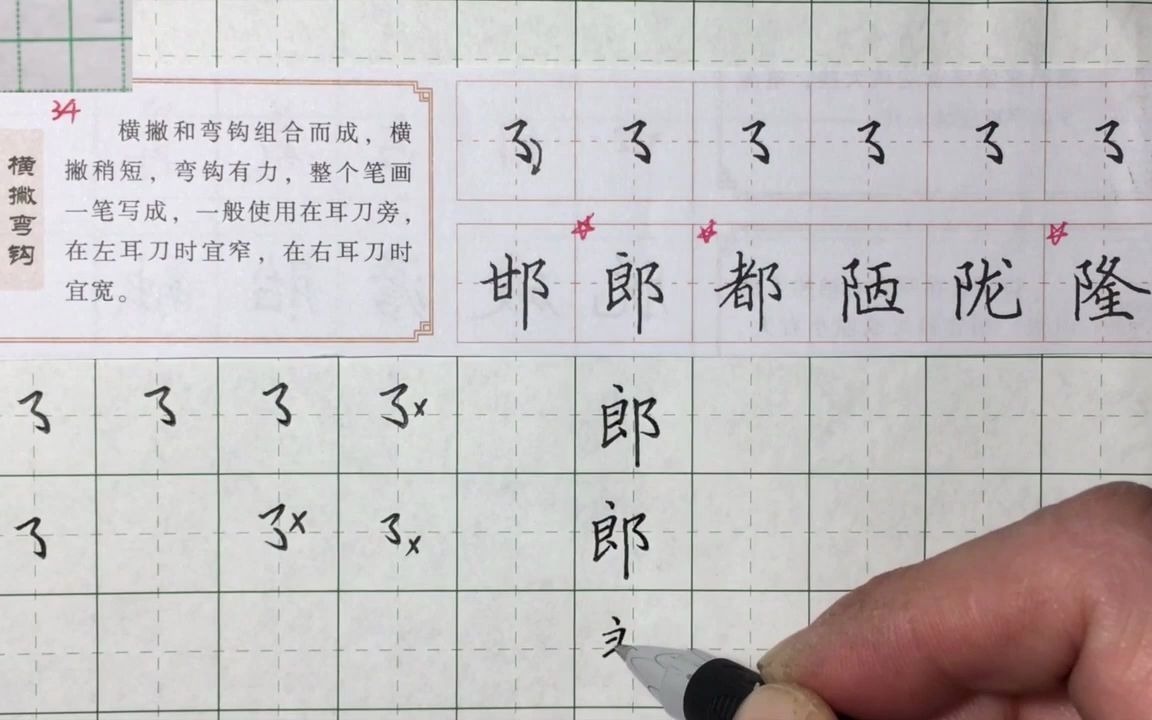 34
横撇弯钩
横撇和弯钩组合而成，横
撇稍短，弯钩有力，整个笔画
一笔写成，一般使用在耳刀旁，
在左耳刀时宜窄，在右耳刀时
宜宽。
邯 郎 都 陋 陇 隆
郎
郎